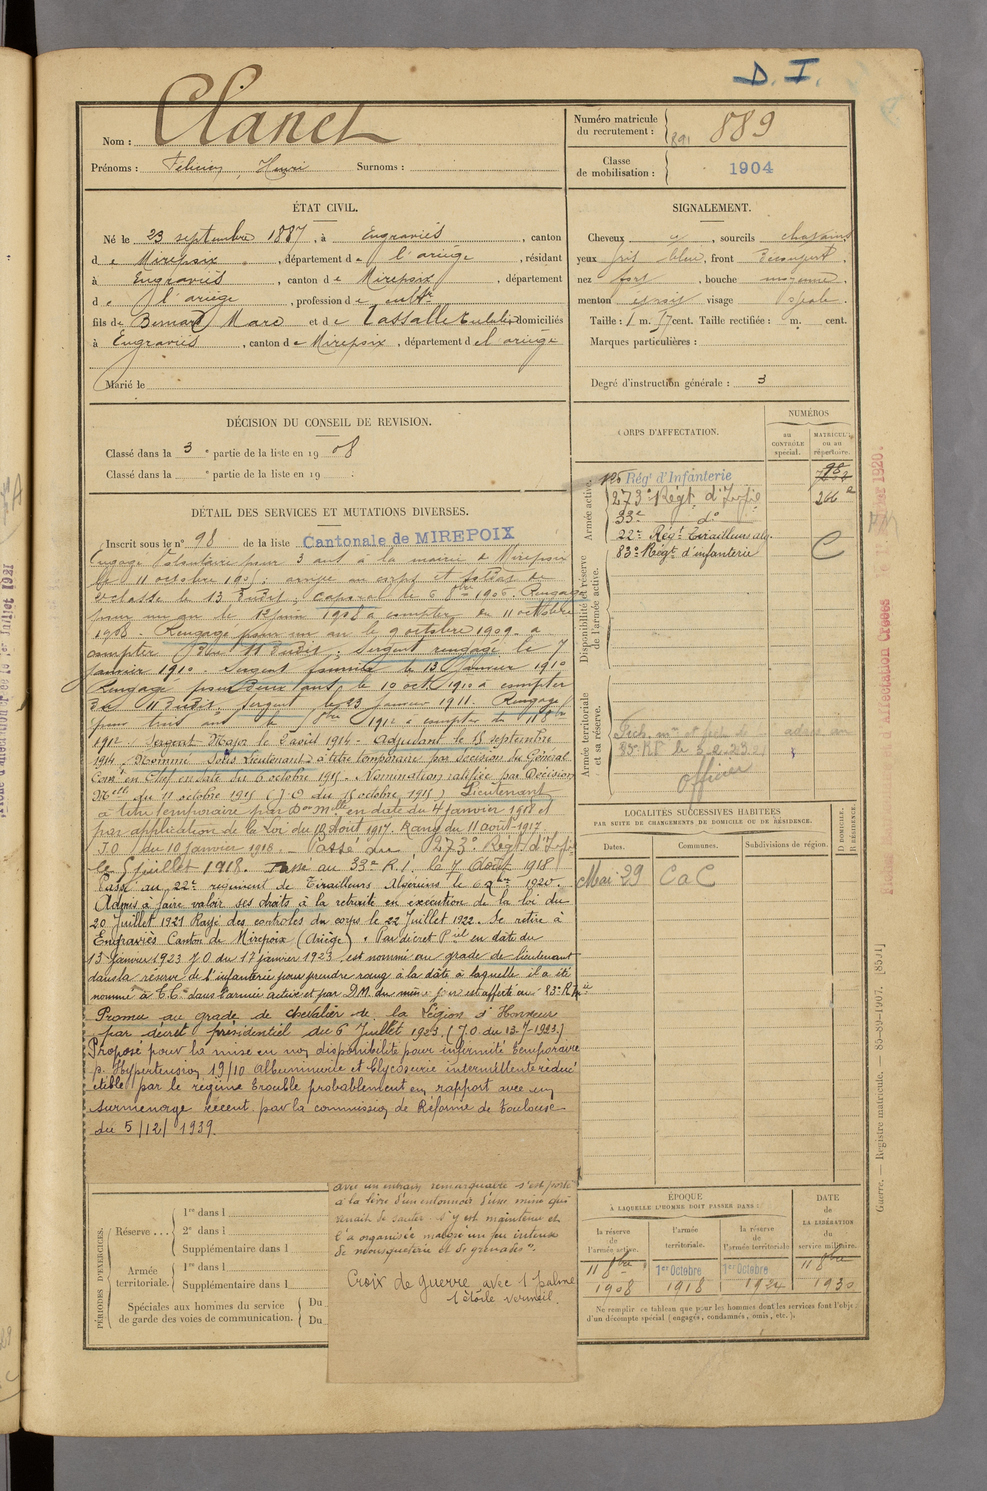 D. I.
Nom : Clanet
Prénoms : Félicien, Henri Surnoms :
Numéro matricule
du recrutement : 889
891
Classe
de mobilisation : 1904
ÉTAT CIVIL.
Né le 23 septembre 1887, à Engraviès, canton
de Mirepoix, département de l'ariège, résidant
à Engraviès, canton de Mirepoix, département
de l'ariège, profession de cultr
fils de Bernard Marc et de Lassalle Eulalie domiciliés
à Engraviès, canton de Mirepoix, département de l'ariège
Marié le
SIGNALEMENT.
Cheveux , sourcils chatains
yeux gris bleu, front découvert,
nez fort, bouche moyenne,
menton étroit visage ovale.
Taille : 1 m. cent. Taille rectifiée : m. cent.
Marques particulières :
Degré d'instruction générale : 3
DÉCISION DU CONSEIL DE REVISION.
Classé dans la 3e partie de la liste en 1908
Classé dans la e partie de la liste en 19
DÉTAIL DES SERVICES ET MUTATIONS DIVERSES.
Inscrit sous le n° 98 de la liste Cantonale de MIREPOIX
Engagé volontaire pour 3 ans à la mairie de Mirepoix
le 11 octobre 1905; arrivé au corps et soldat de
2e classe le 13 dudit; Caporal le 6 1906. Rengagé
pour un an le 12 juin 1908 à compter du 11 octobre
1908. Rengagé pour un an le 9 octobre 1909 à
compter du 11 dudit; Sergent rengagé le 7
janvier 1910 Sergent fourrier le 13 janvier 1910
Rengagé pour deux ans, le 10 oct. 1910 à compter
du 11 dudit. Sergent le 23 janvier 1911. Rengagé
pour trois ans le 8bre 1912 à compter du 11 8bre
1912. Sergent Major le 2 août 1914. Adjudant le 15 septembre
1914. Nommé Sous Lieutenant à titre temporaire par décision du Général
Comt en Chef en date du 6 octobre 1915. Nomination ratifiée par Décision
Mlle du 11 octobre 1915 (J.O du 15 octobre 1915) Lieutenant
à titre temporaire par Don mlle en date du 4 janvier 1918 et
par application de la Loi du 10 août 1917. Rang du 11 août 1917
J.O du 10 janvier 1918. Passé au 273e Régt d'Infie
le 5 juillet 1918. Passé au 33e R.I. le 7 août 1918
Passé au 22e régiment de Tirailleurs Algériens le 6 1920.
Admis à faire valoir ses droits à la retraite en exécution de la loi du
20 Juillet 1921 Rayé des contrôles du corps le 22 Juillet 1922. Se retire à
Engraviès Canton de Mirepoix (Ariège). Par décret Piel en date du
13 Janvier 1923 J.O du 17 janvier 1923 est nommé au grade de lieutenant
dans la réserve de l'infanterie pour prendre rang à la date à laquelle il a été
nommé à T.T. dans l'armée active et par D.M. du même jour est affecté au 83e R.I.
Promu au grade de chevalier de la Légion d'Honneur
par décret présidentiel du 6 Juillet 1923 (J.O. du 13-7-1923.)
Proposé pour la mise en non disponibilité pour infirmité temporaire
p. Hypertension 19/10 albuminurie et Glycosurie intermittente réduc
tible par le régime trouble probablement en rapport avec un
surmenage récent par la commission de Réforme de Toulouse
du 5/12/1939.
CORPS D'AFFECTATION.
NUMÉROS
au
CONTRÔLE
spécial.
MATRICULE
ou au
répertoire.
Armée active.
126 Rég' d'Infanterie
273e Régt d'Infie 266
33e do
22e Régt Tirailleurs alg.
83e Régt d'infanterie
Disponibilité et réserve
de l'armée active.
Armée territoriale
et sa réserve.
officier
LOCALITÉS SUCCESSIVES HABITÉES
PAR SUITE DE CHANGEMENTS DE DOMICILE OU DE RÉSIDENCE.
Dates. Communes. Subdivisions de région. D DOMICILE. R RÉSIDENCE.
Mai 29 CaC
PÉRIODES D'EXERCICES.
Réserve . . .
1re dans l
2e dans l
Supplémentaire dans l
Armée
territoriale.
1re dans l
Supplémentaire dans l
Spéciales aux hommes du service
de garde des voies de communication.
Du
Du
avec un entrain remarquable s'est porté
à la lèvre d'un entonnoir d'une mine qui
venait de sauter s'y est maintenu et
l'a organisée malgré un feu intense
de mousqueterie et de grenades".
Croix de guerre avec 1 palme
1 étoile vermeil.
ÉPOQUE
À LAQUELLE L'HOMME DOIT PASSER DANS :
la réserve
de
l'armée active.
l'armée
territoriale.
la réserve
de
l'armée territoriale
DATE
de
LA LIBÉRATION
du
service militaire.
11 8bre 1908
1er Octobre 1918
1er Octobre 1924
11 8bre 1930
Ne remplir ce tableau que pour les hommes dont les services font l'objet
d'un décompte spécial (engagés, condamnés, omis, etc.).
Guerre. — Registre matricule. — 85-89-1907. [8501]